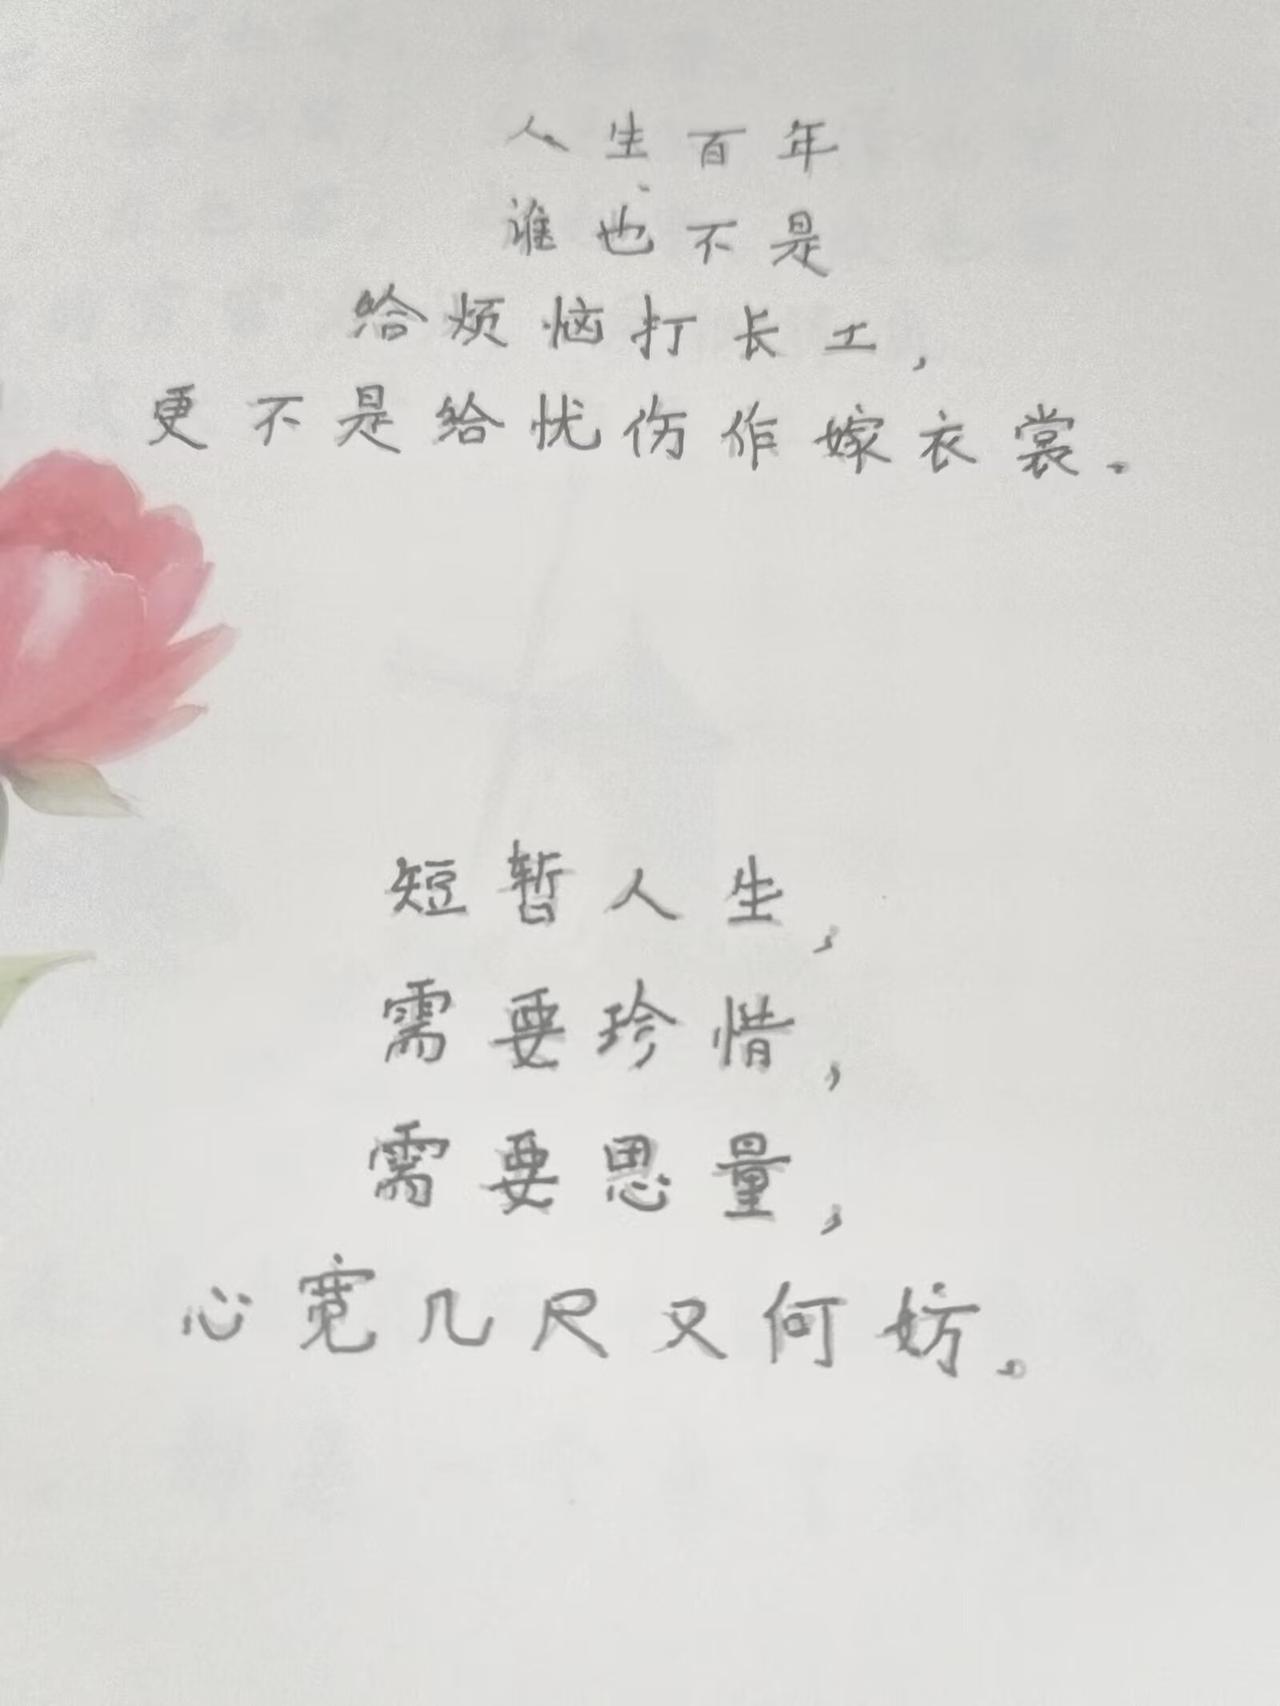 人生百年
谁也不是
给烦恼打长工，
更不是给忧伤作嫁衣裳。
短暂人生，
需要珍惜，
需要思量，
心宽几尺又何妨。